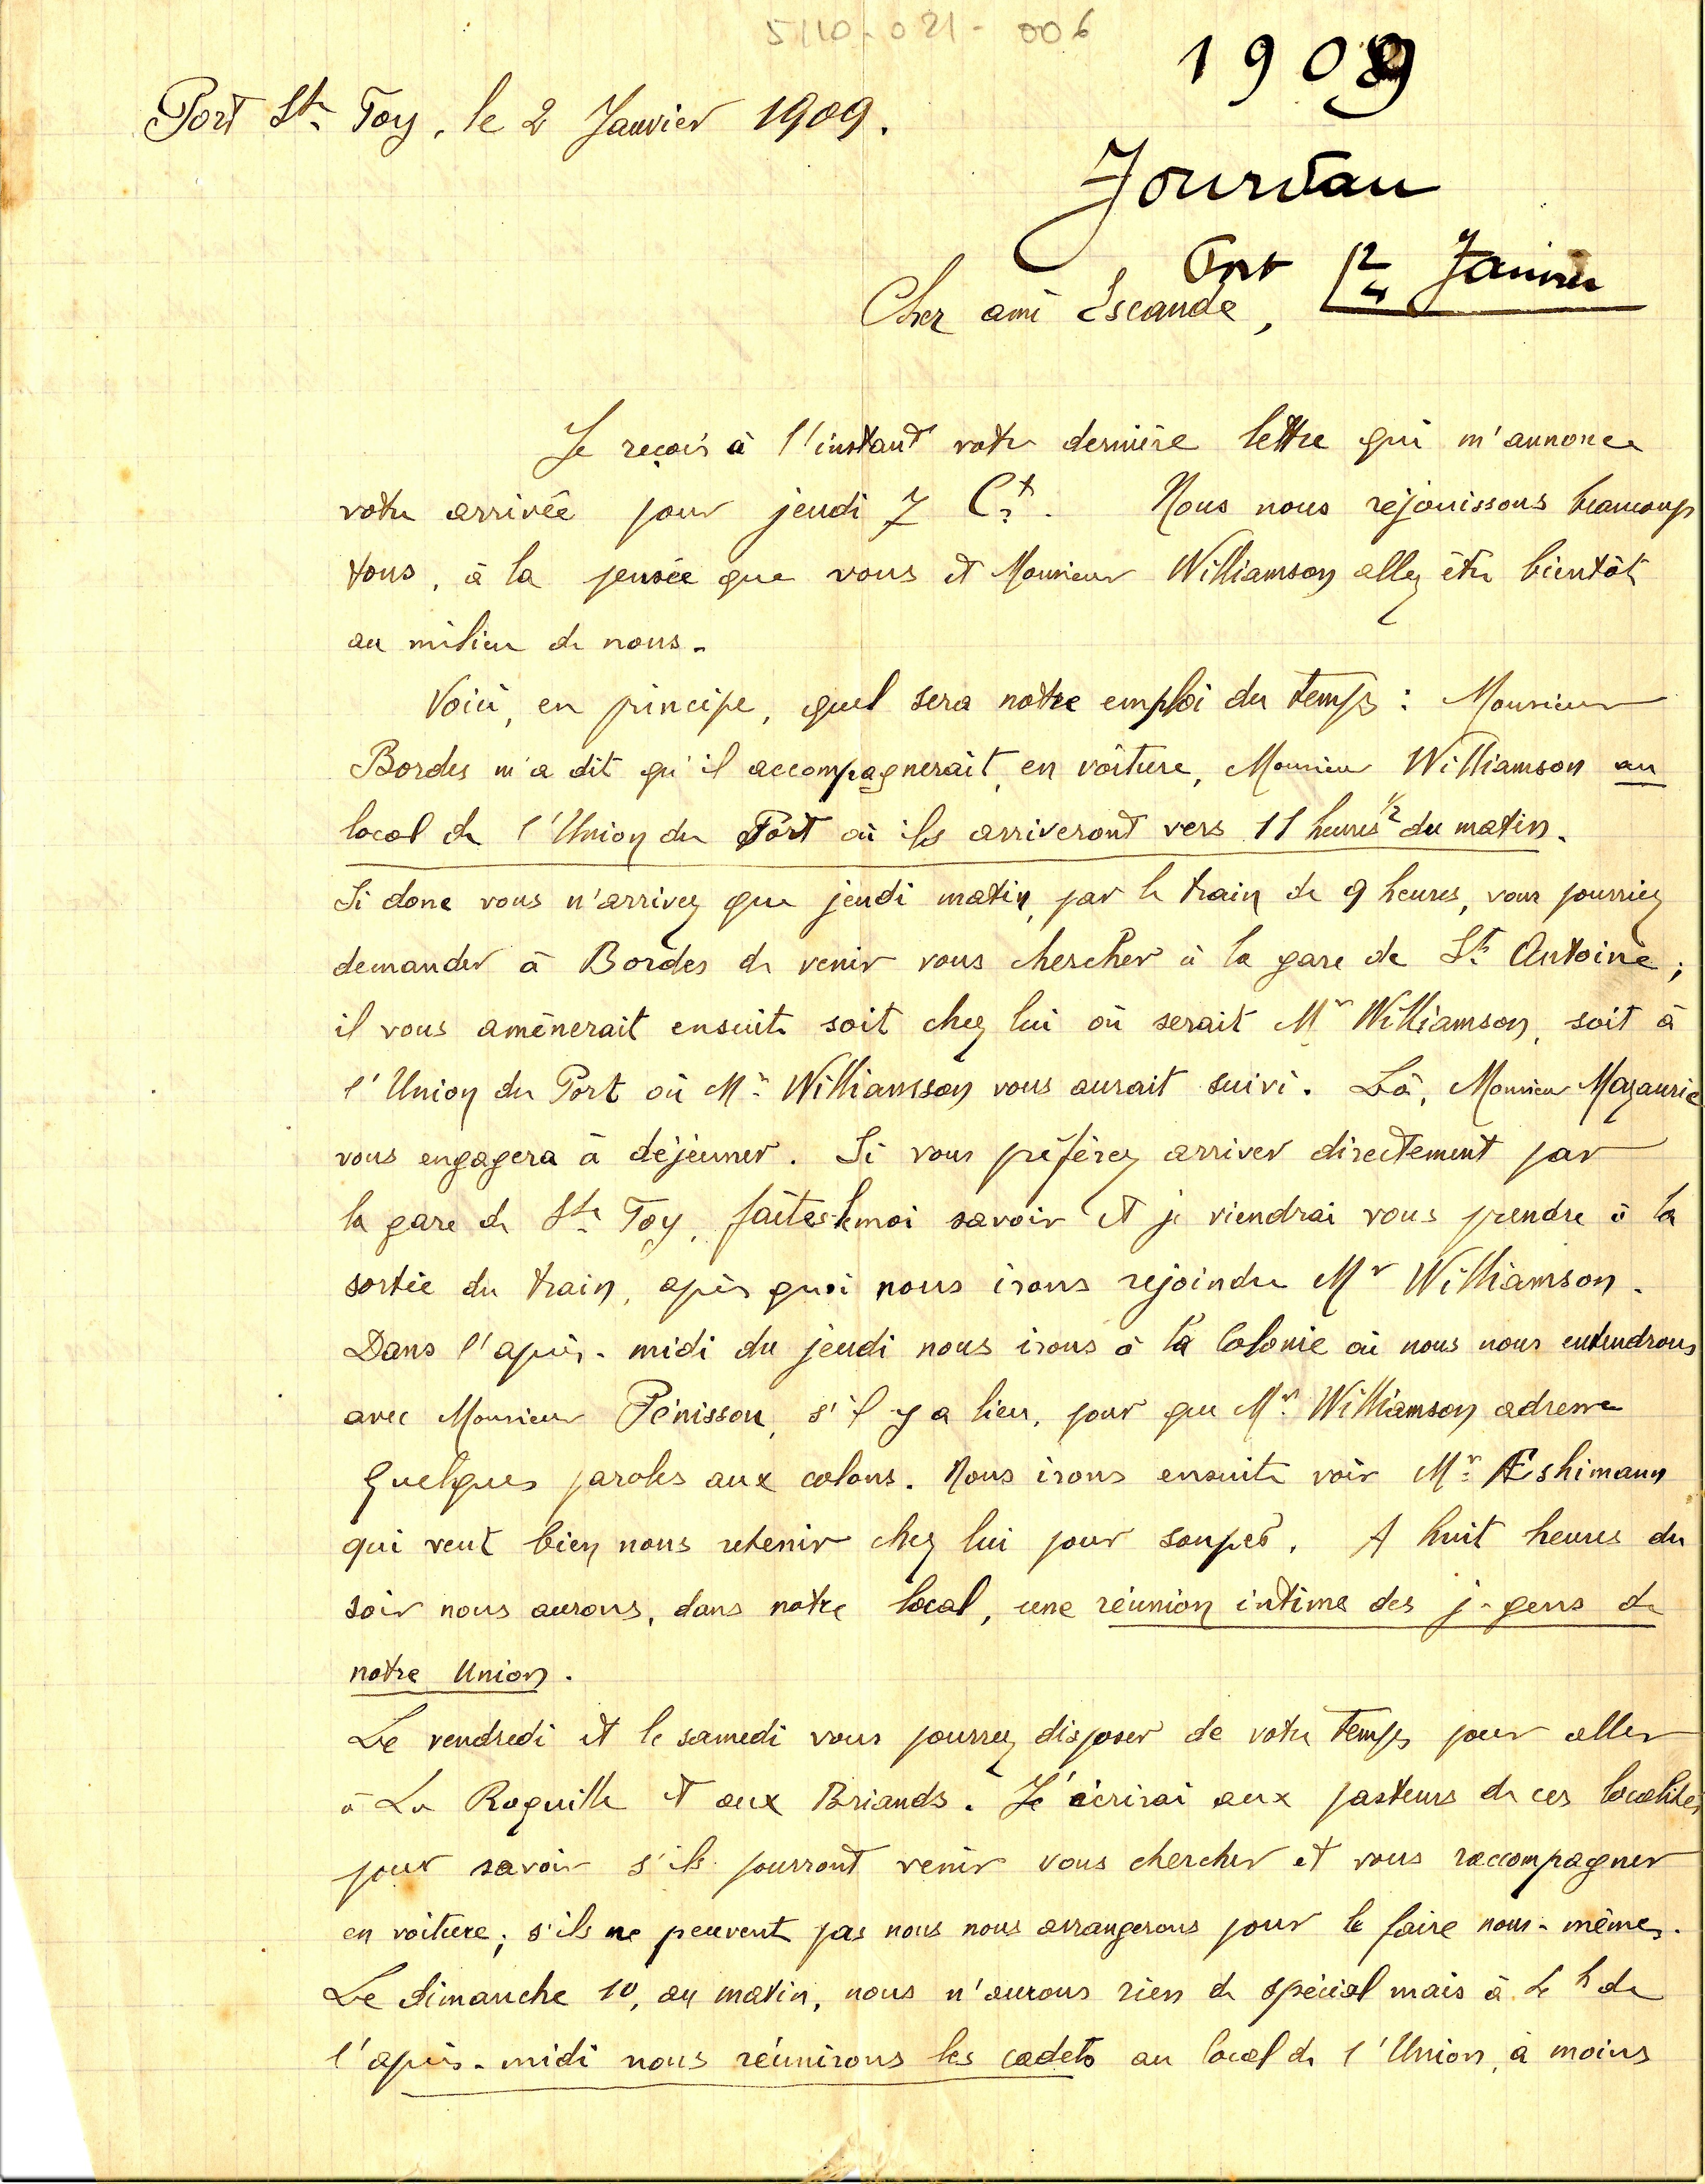 5110-021-006
1909
Port Ste Foy, le 2 Janvier 1909.
Jourdan
Port 2 Janvier
Cher ami Escande,
Je reçois à l'instant votre dernière lettre qui m'annonce
votre arrivée pour jeudi 7 Ct. Nous nous réjouissons beaucoup
tous, à la pensée que vous et Monsieur Williamson allez être bientôt
au milieu de nous.
Voici, en principe, quel sera notre emploi du temps : Monsieur
Bordes m'a dit qu'il accompagnerait, en voiture, Monsieur Williamson au
local de l'Union du Port où ils arriveront vers 11 heures 1/2 du matin.
Si donc vous n'arrivez que jeudi matin, par le train de 9 heures, vous pourriez
demander à Bordes de venir vous chercher à la gare de St Antoine ;
il vous amènerait ensuite soit chez lui où serait Mr Williamson, soit à
l'Union du Port où Mr Williamsson vous aurait suivi. Là, Monsieur Mazauric
vous engagera à déjeuner. Si vous préférez arriver directement par
la gare de Ste Foy, faites-le moi savoir et je viendrai vous prendre à la
sortie du train, après quoi nous irons rejoindre Mr Williamson.
Dans l'après-midi du jeudi nous irons à la Colonie où nous nous entendrons
avec Monsieur Pénisson, s'il y a lieu, pour que Mr Williamson adresse
quelques paroles aux colons. Nous irons ensuite voir Mr Æshimann
qui veut bien nous retenir chez lui pour souper. A huit heures du
soir nous aurons, dans notre local, une réunion intime des j-gens de
notre Union.
Le vendredi et le samedi vous pourrez disposer de votre temps pour aller
à La Roquille et aux Briands. J'écrirai aux pasteurs de ces localités
pour savoir s'ils pourront venir vous chercher et vous raccompagner
en voiture ; s'ils ne peuvent pas nous nous arrangerons pour le faire nous-mêmes.
Le dimanche 10, au matin, nous n'aurons rien de spécial mais à h de
l'après-midi nous réunirons les cadets au local de l'Union, à moins